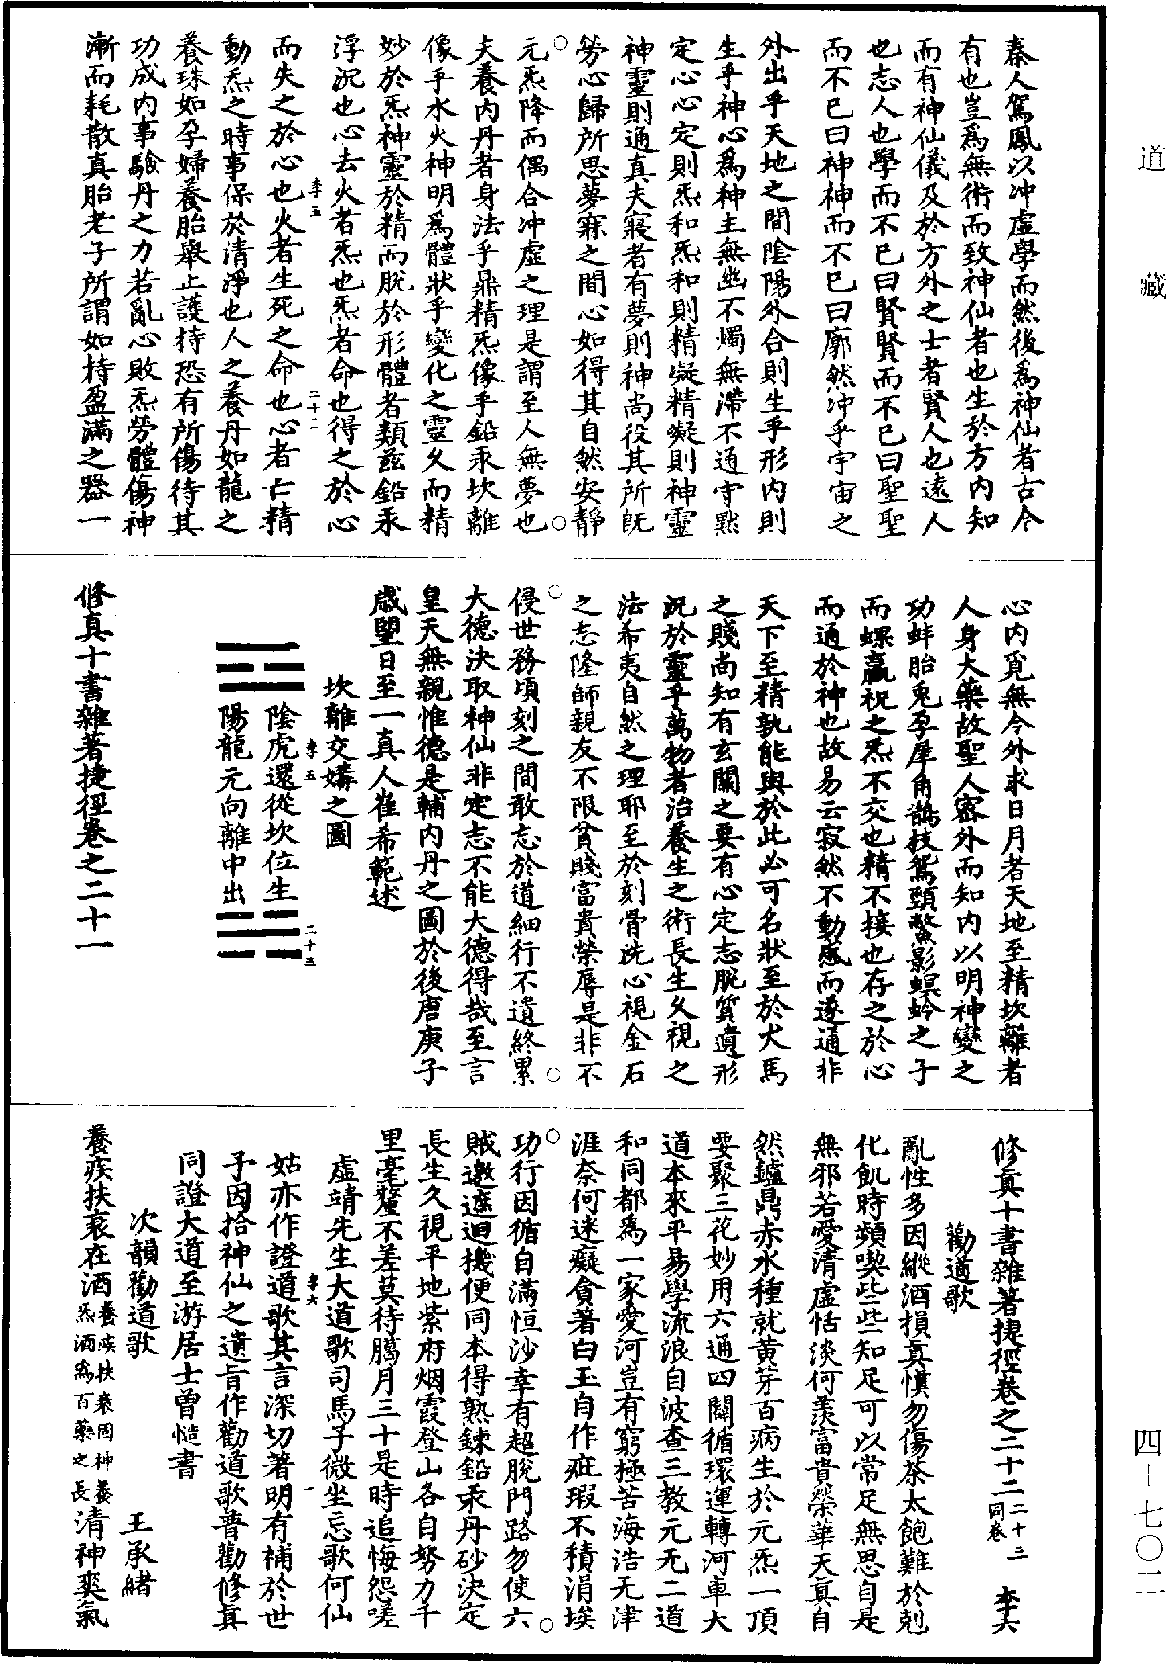 道藏
秦人駕鳳以冲虛學而然後為神仙者古今
有也豈為無術而致神仙者也生於方內知
而有神仙儀及於方外之士者賢人也遠人
也志人也學而不已曰賢賢而不已曰聖聖
而不已曰神神而不已曰廓然冲乎宇宙之
外出乎天地之間陰陽外合則生乎形內則
生乎神心為神主無幽不燭無滯不通守默
定心心定則炁和炁和則精凝精凝則神靈
神靈則通真夫寢者有夢則神尚役其所旣
勞心歸所思夢寐之間心如得其自然安靜
元炁降而偶合冲虛之理是謂至人無夢也
夫養內丹者身法乎鼎精炁像乎鉛汞坎離
像乎水火神明為體狀乎變化之靈久而精
妙於炁神靈於精而脫於形體者類茲鉛汞
浮沉也心去火者炁也炁者命也得之於心
李五
二十二
而失之於心也火者生死之命也心者亡精
動炁之時事保於清淨也人之養丹如龍之
養珠如孕婦養胎舉止護持恐有所傷待其
功成內事驗丹之力若亂心敗炁勞體傷神
漸而耗散真胎老子所謂如持盈滿之器一
心內覓無今外求日月若天地至精坎離者
人身大藥故聖人密外而知內以明神變之
功蚌胎兎孕犀角鵲技鴛頸鱉影螟蛉之子
而螺蠃祝之炁不交也精不接也存之於心
而通於神也故易云寂然不動感而遂通非
天下至精孰能與於此必可名狀至於犬馬
之賤尚知有玄關之要有心定志脫質遺形
況於靈乎萬物者治養生之術長生久視之
法希夷自然之理耶至於刻骨洗心視金石
之志隆師親友不限貧賤富貴榮辱是非不
侵世務頃刻之間敢忘於道細行不遺終累
大德決取神仙非定志不能大德得哉至言
皇天無親惟德是輔內丹之圖於後唐庚子
歲朢日至一真人崔希範述
坎離交媾之圖
李五
二十三
陰虎還從坎位生
陽龍元向離中出
修真十書雜著捷徑卷之二十一
修真十書雜著捷徑卷之二十二 二十三同卷 李六
勸道歌
亂性多因縱酒損真慎勿傷茶太飽難於剋
化飢時頻喫些些知足可以常足無思自是
無邪若愛清虛恬淡何羨富貴榮華天真自
然鑪鼎赤水種就黃芽百病生於元炁一頂
要聚三花妙用六通四闢循環運轉河車大
道本來平易學流浪自波查三教元无二道
和同都為一家愛河豈有窮極苦海浩无津
涯奈何迷癡貪著白玉自作疵瑕不積涓埃
功行因循自滿恒沙幸有超脫門路勿使六
賊邀遮迴機便同本得熟鍊鉛汞丹砂決定
長生久視平地紫府烟霞登山各自努力千
里毫釐不差莫待臈月三十是時追悔怨嗟
虛靖先生大道歌司馬子微坐忘歌何仙
李六
一
姑亦作證道歌其言深切著明有補於世
予因拾神仙之遺旨作勸道歌普勸修真
同證大道至游居士曾慥書
次韻勸道歌 王承緒
養疾扶衰在酒 養疾扶衰因神養炁酒為百藥之長 清神爽氣
四－七〇二